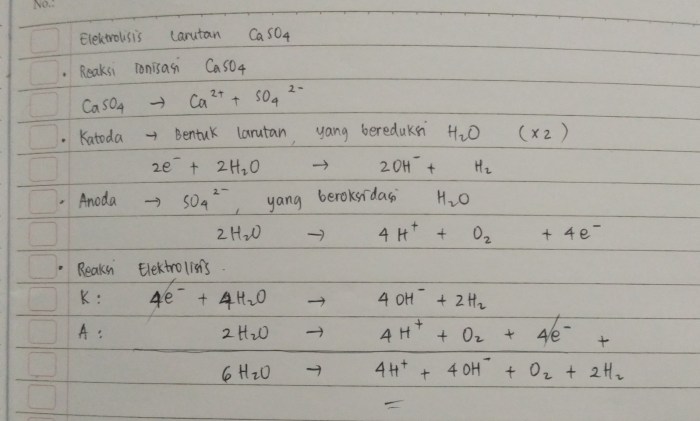 No.:
Elektrolisis larutan CaSO4
• Reaksi Ionisasi CaSO4
CaSO4 → Ca²⁺ + SO4²⁻
• Katoda → Bentuk larutan, yang bereduksi H2O (x2)
2e⁻ + 2H2O → 2OH⁻ + H2
• Anoda → SO4²⁻, yang beroksidasi H2O
2H2O → 4H⁺ + O2 + 4e⁻
• Reaksi Elektrolisis.
K: 4e⁻ + 4H2O → 4OH⁻ + 2H2
A: 2H2O → 4H⁺ + O2 + 4e⁻ +
6H2O → 4H⁺ + 4OH⁻ + O2 + 2H2